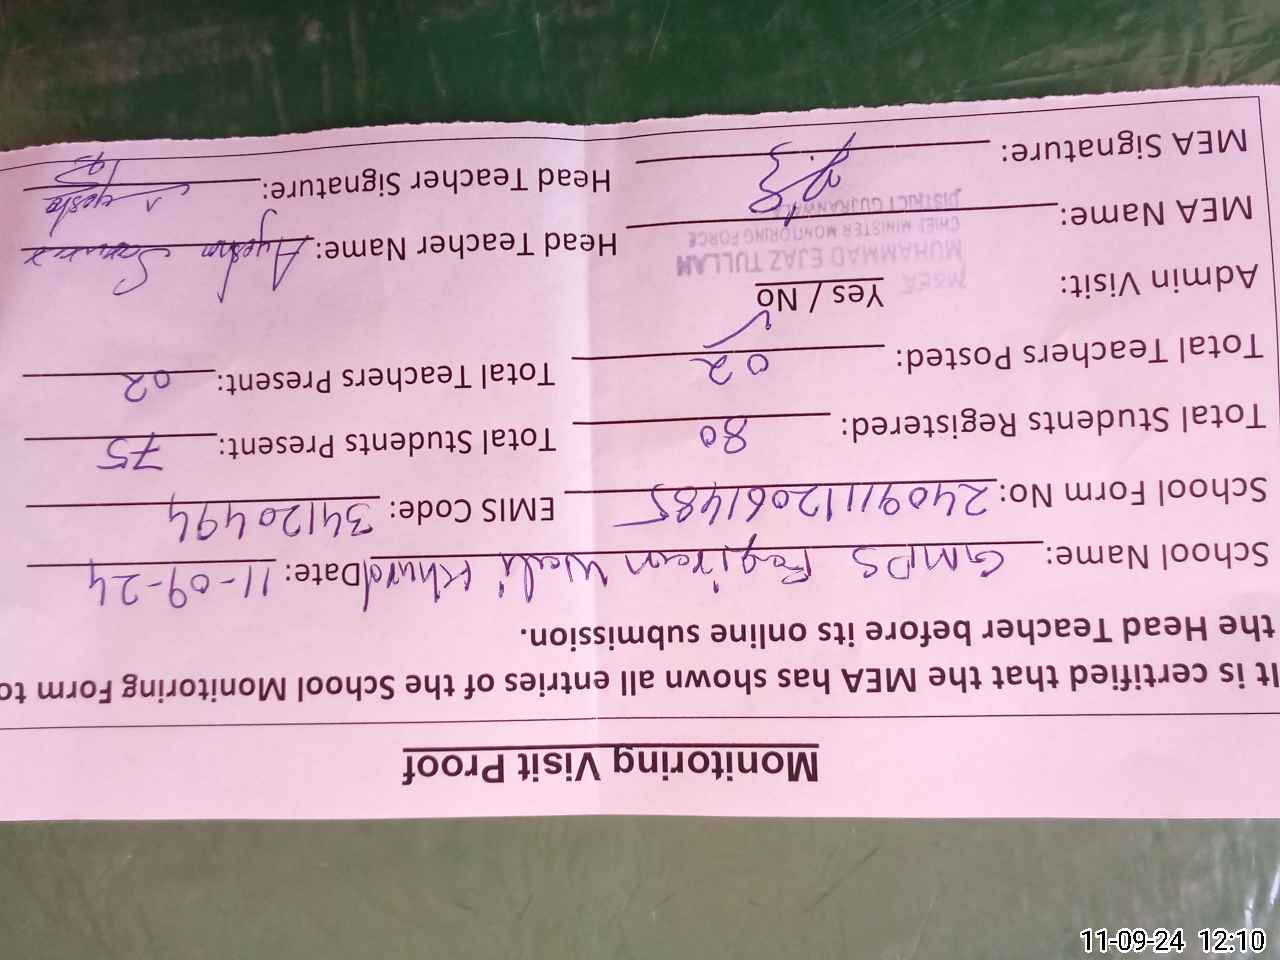 Monitoring Visit Proof
It is certified that the MEA has shown all entries of the School Monitoring Form to
the Head Teacher before its online submission.
School Name: GMPS Faqiran Wali Khurd Date: 11-09-24
School Form No: 24091112061485 EMIS Code: 34120494
Total Students Registered: 80 Total Students Present: 75
Total Teachers Posted: 02 Total Teachers Present: 02
Admin Visit: Yes / No
MEA Name: MUHAMMAD EJAZ TULLAH Head Teacher Name: Ayesha
CHIEF MINISTER MONITORING FORCE
DISTRICT GUJRANWALA
MEA Signature: Head Teacher Signature: Ayesha
11-09-24 12:10